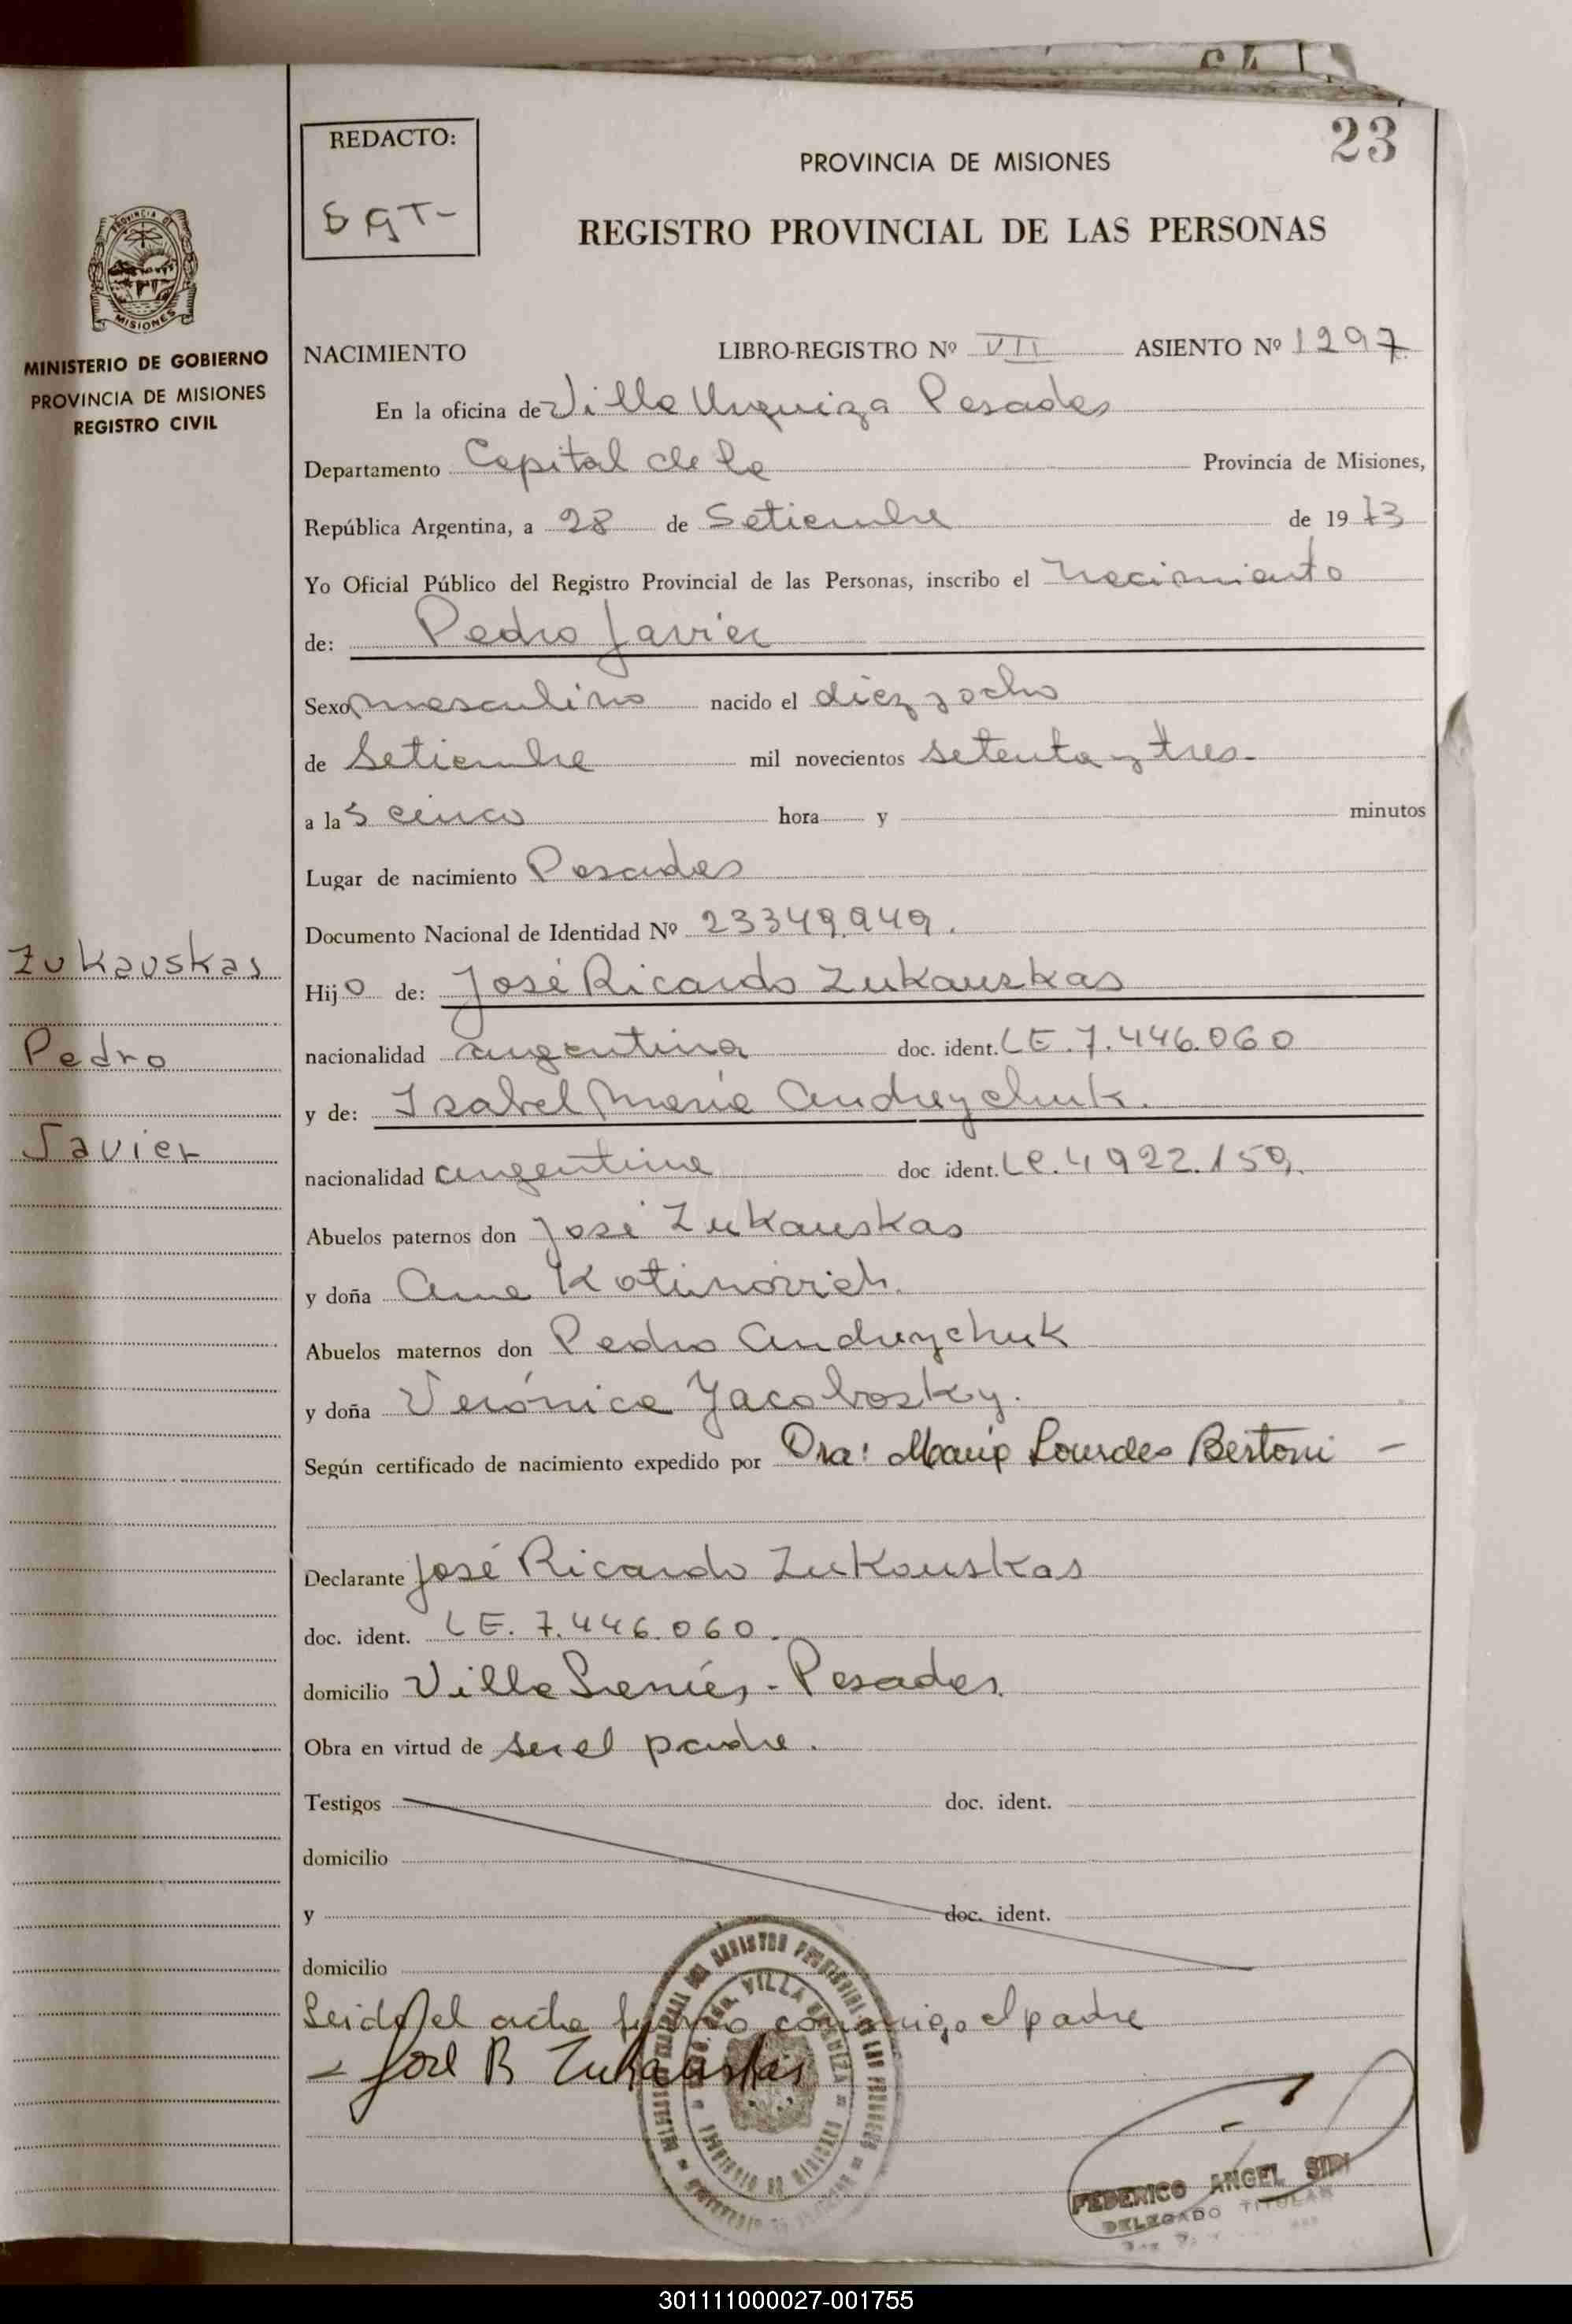 23
REDACTO:
PROVINCIA DE MISIONES
REGISTRO PROVINCIAL DE LAS PERSONAS
MISIONES
MINISTERIO DE GOBIERNO
PROVINCIA DE MISIONES
REGISTRO CIVIL
NACIMIENTO LIBRO-REGISTRO Nº VII ASIENTO Nº 1297
En la oficina de Villa Urquiza Posadas
Departamento Capital de la Provincia de Misiones,
República Argentina, a 28 de Setiembre de 1973
Yo Oficial Público del Registro Provincial de las Personas, inscribo el nacimiento
de: Pedro Javier
Sexo masculino nacido el diez y ocho
de Setiembre mil novecientos setenta y tres-
a las cinco hora y minutos
Lugar de nacimiento Posadas
Documento Nacional de Identidad Nº 23349.949.
Zukauskas
Hijo de: José Ricardo Zukauskas
Pedro
nacionalidad argentina doc. ident. LE.7.446.060
y de: Isabel María Andreychuk.
Javier
nacionalidad argentina doc ident. LC.4922.159.
Abuelos paternos don José Zukauskas
y doña Ana Kotinóvich.
Abuelos maternos don Pedro Andreychuk
y doña Verónica Jacobosky.
Según certificado de nacimiento expedido por Dra: María Lourdes Bertoni -
Declarante José Ricardo Zukauskas
doc. ident. LE. 7.446.060.
domicilio Villa - Posadas
Obra en virtud de ser el padre.
Testigos doc. ident.
domicilio
y doc. ident.
domicilio
Leida el acta firmó conmigo el padre
- José R Zukauskas
FEDERICO ANGEL
DELEGADO TITULAR
301111000027-001755